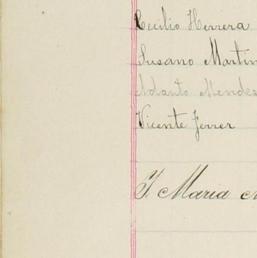 Cecilio Herrera
Susano Martin
Adauto Mendes
Vicente Ferrer
J Maria